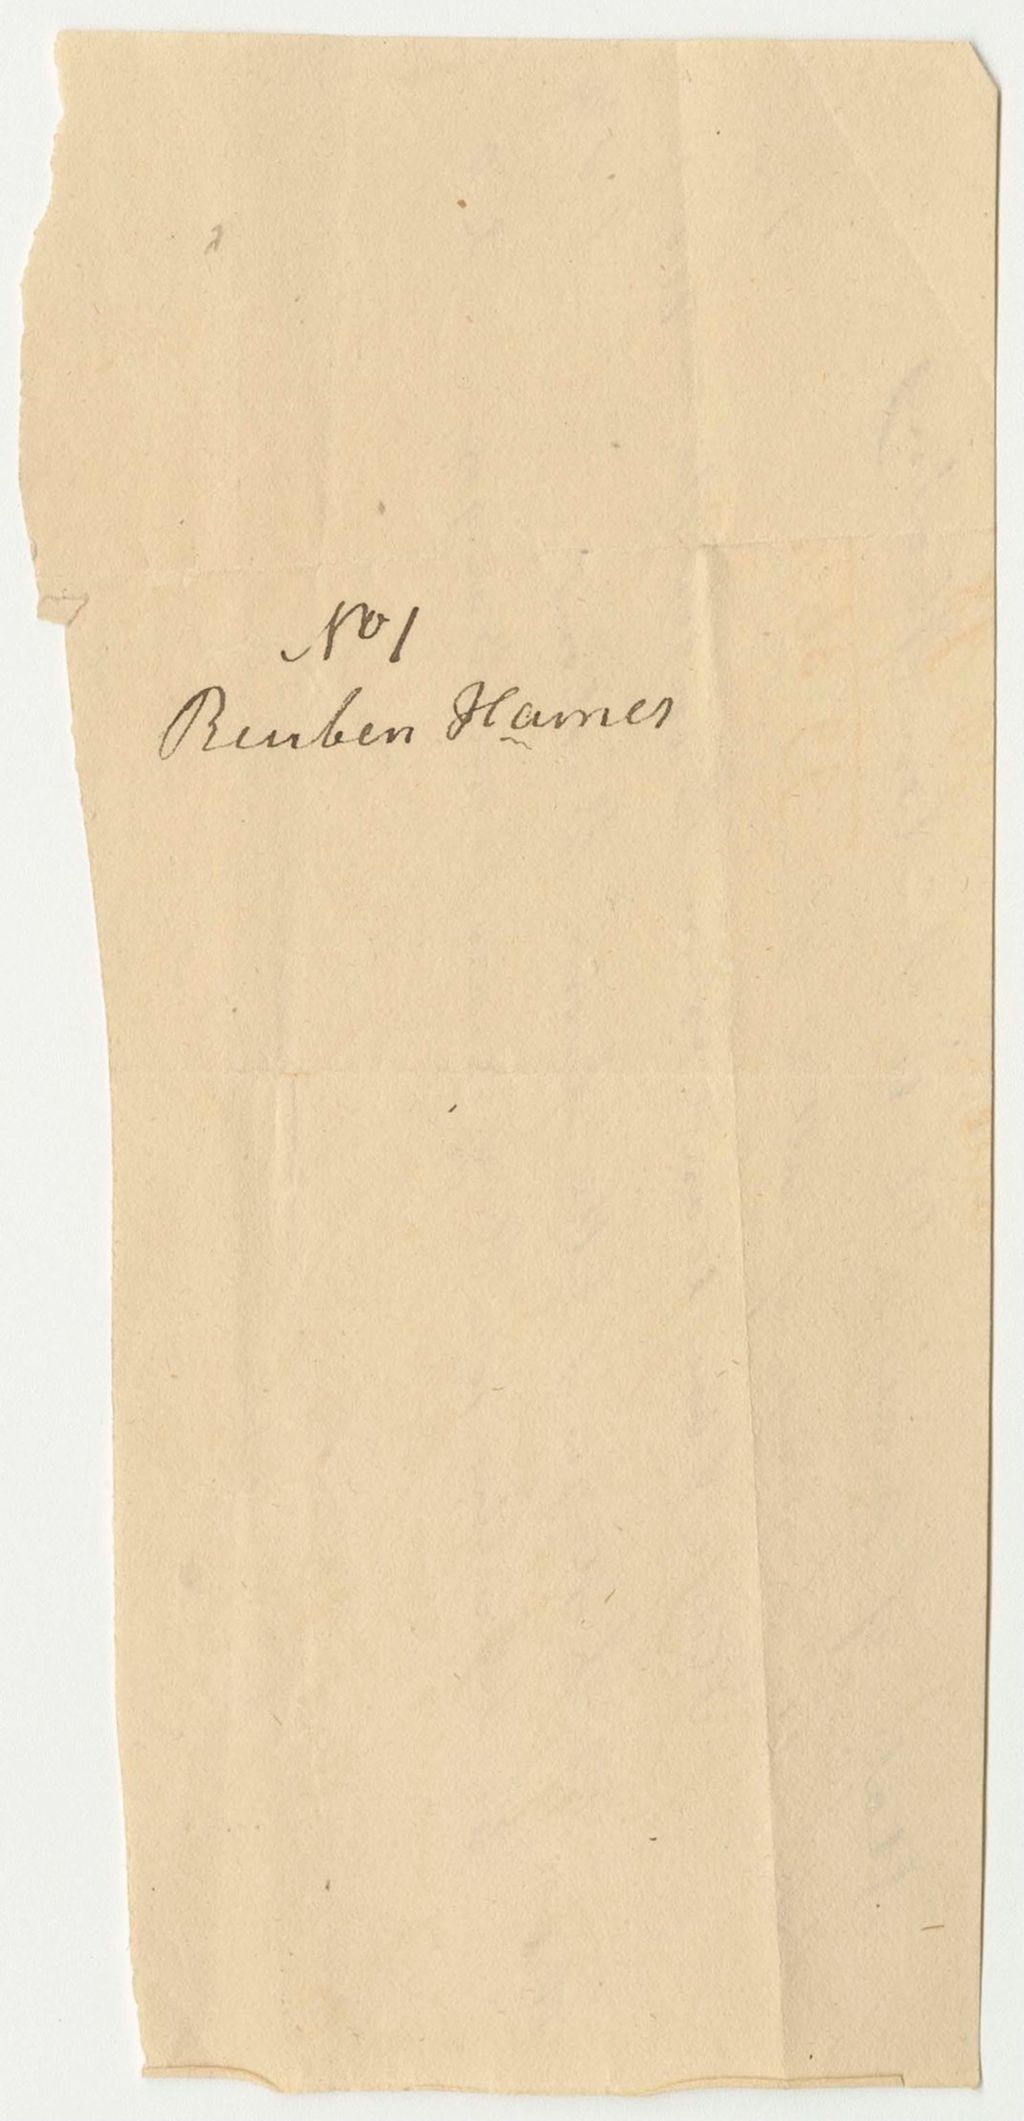 No 1
Reuben Hames